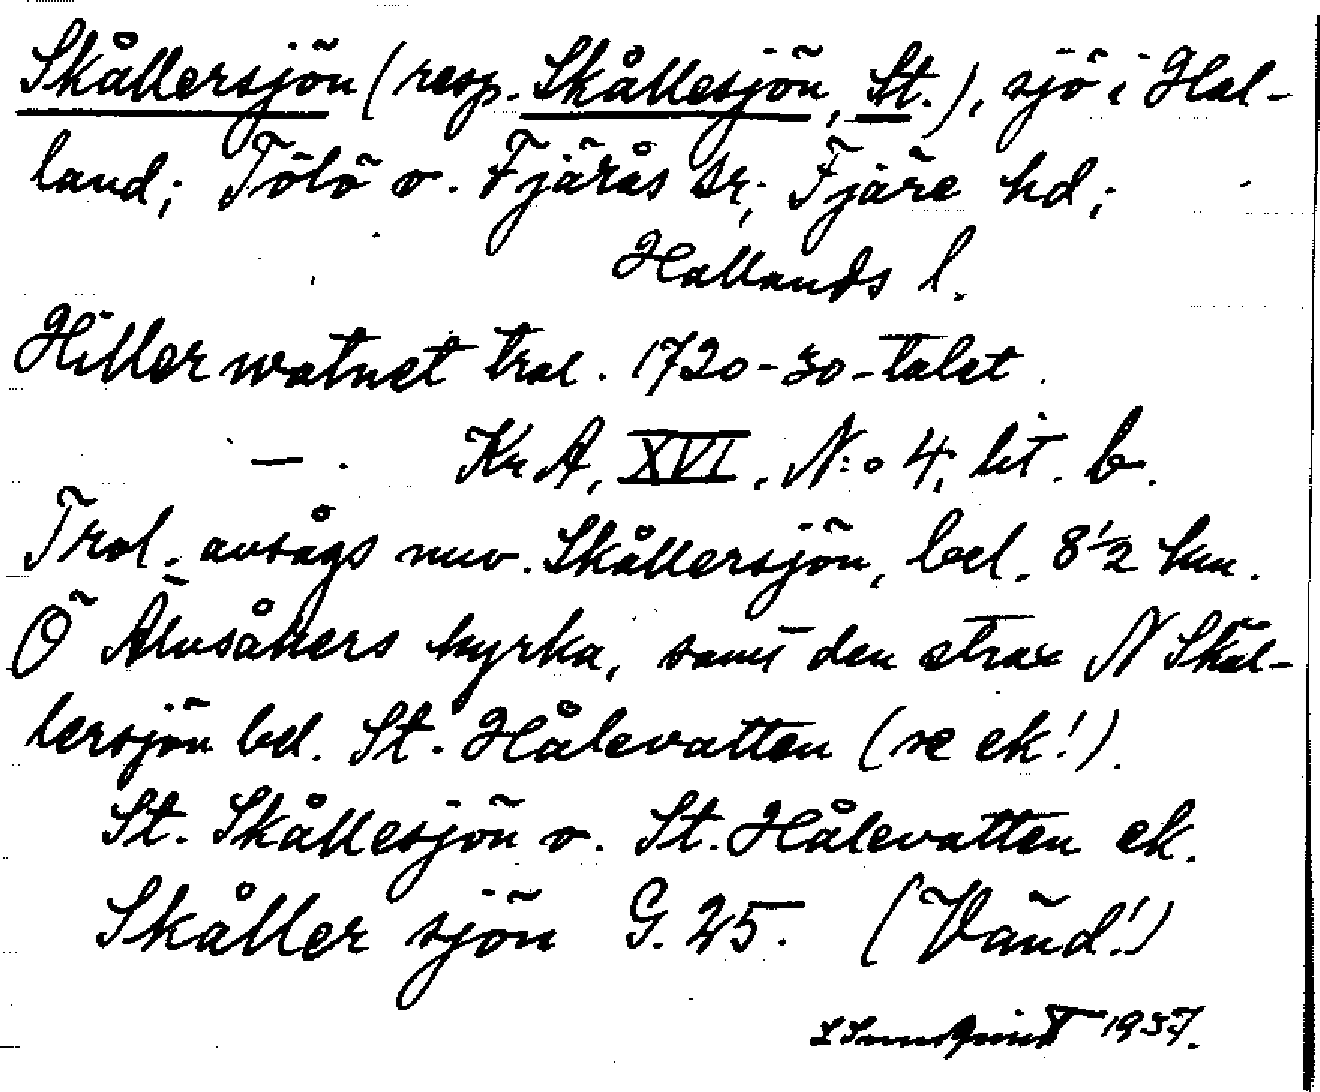 Skållersjön (resp. Skållesjön, St.), sjö i Hal-
land; Tölö o. Fjärås sr; Fjäre hd;
Hallands l.
Hillerwatnet trol. 1720-30-talet.
— . KrA, XVI, N:o 4, lit. b.
Trol. avsågs nuv. Skållersjön, bel. 8 1/2 km.
Ö Älvsåkers kyrka, samt den strax N Skål-
lersjön bel. St. Hålevatten (se ek!).
St. Skållesjön o. St. Hålevatten ek.
Skåller sjön G. 25. (Vänd!)
1937.